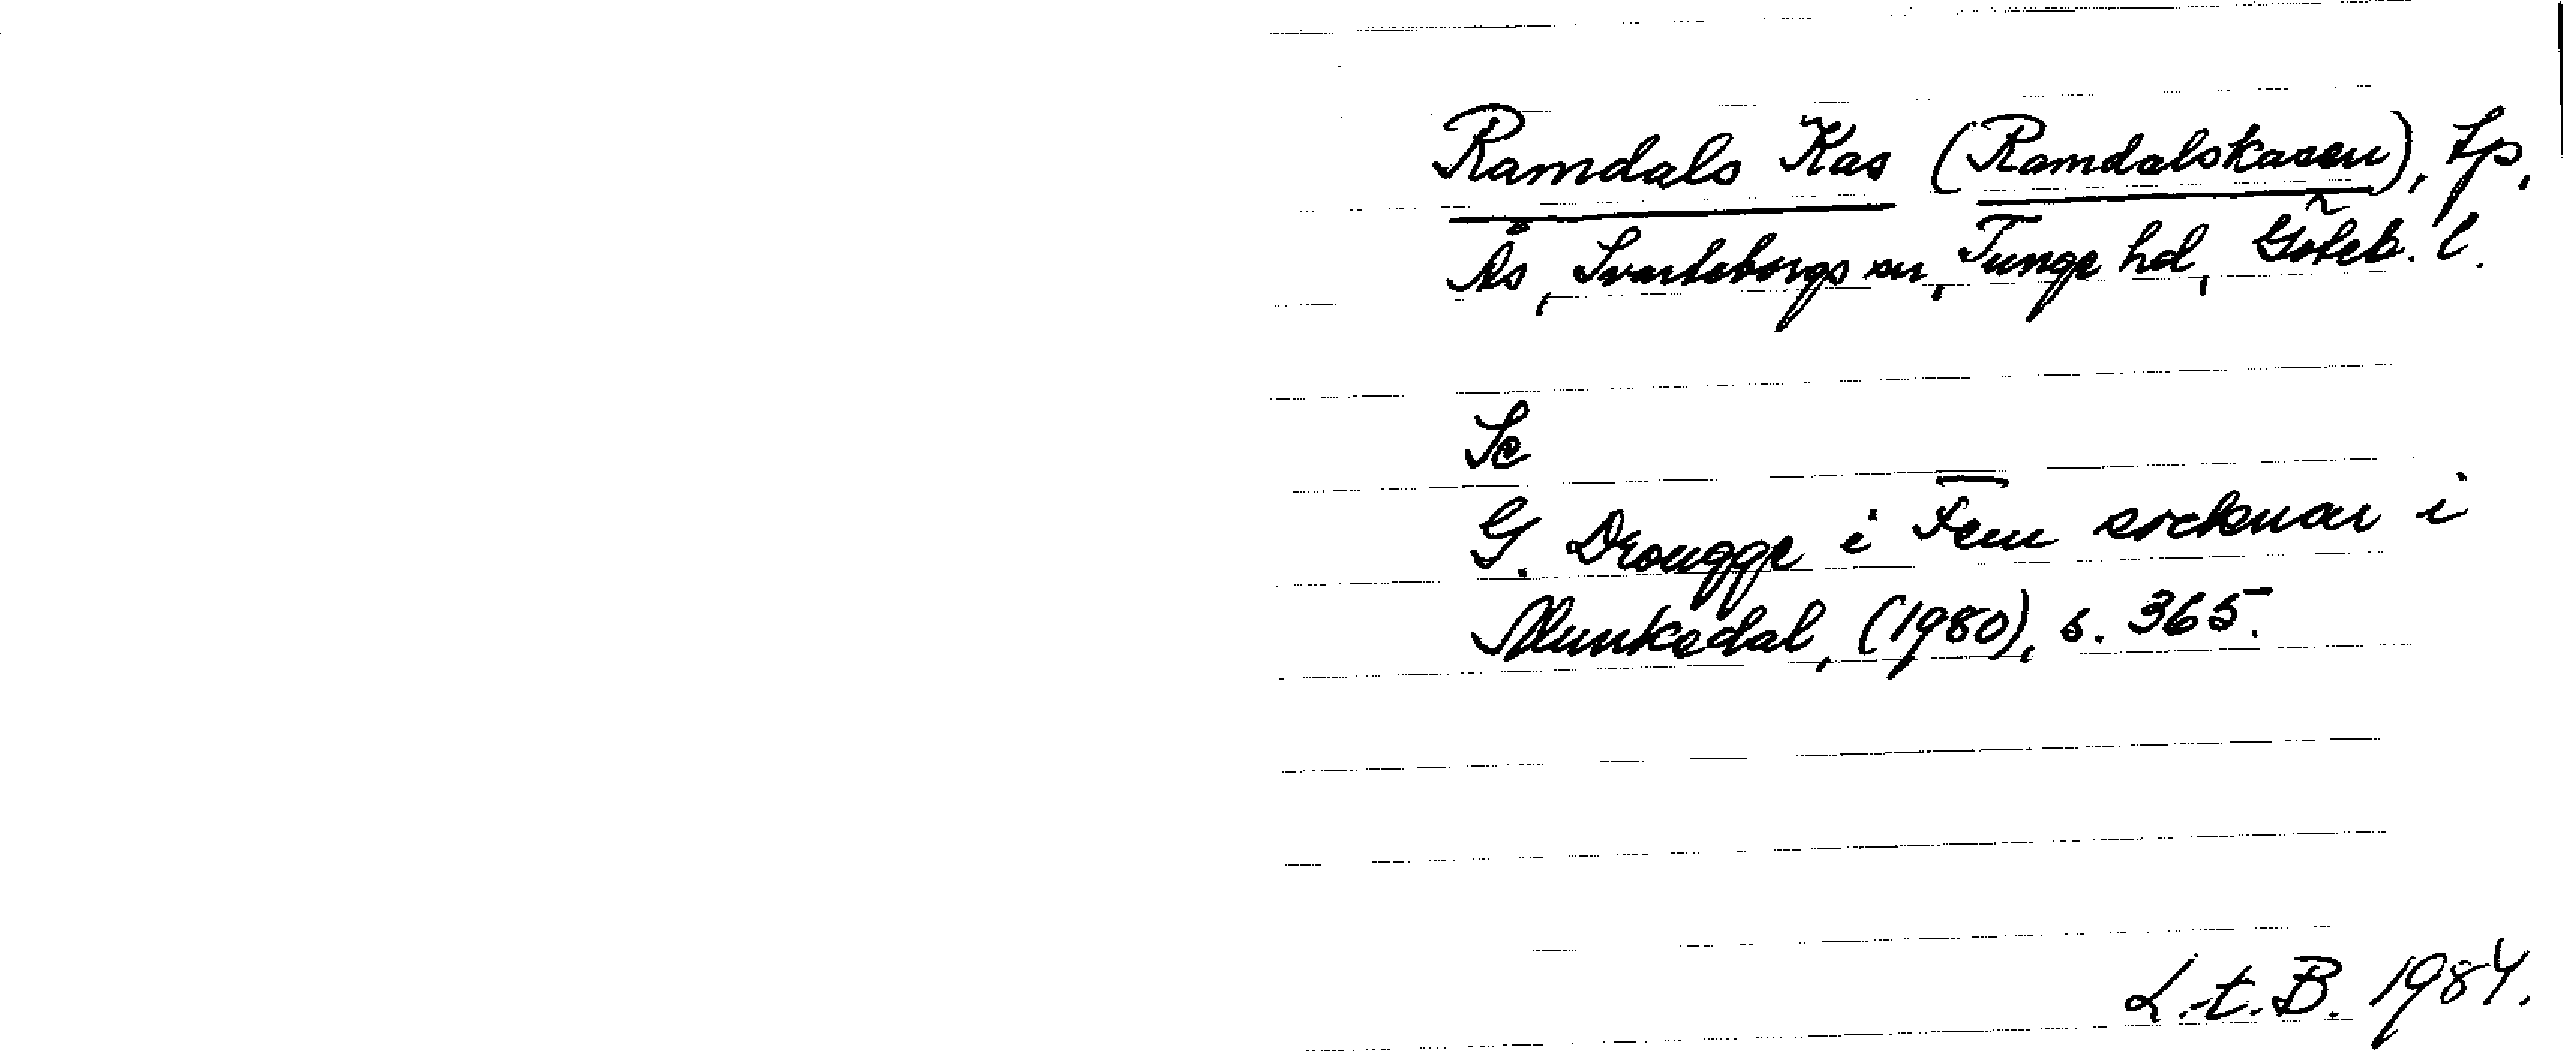 Ramdals Kas (Ramdalskasen), tp,
Ås, Svarteborgs sn, Tunge hd, Göteb. l.
Se
G. Drougge i Fem socknar i
Munkedal, (1980), s. 365.
L.t.B. 1984.